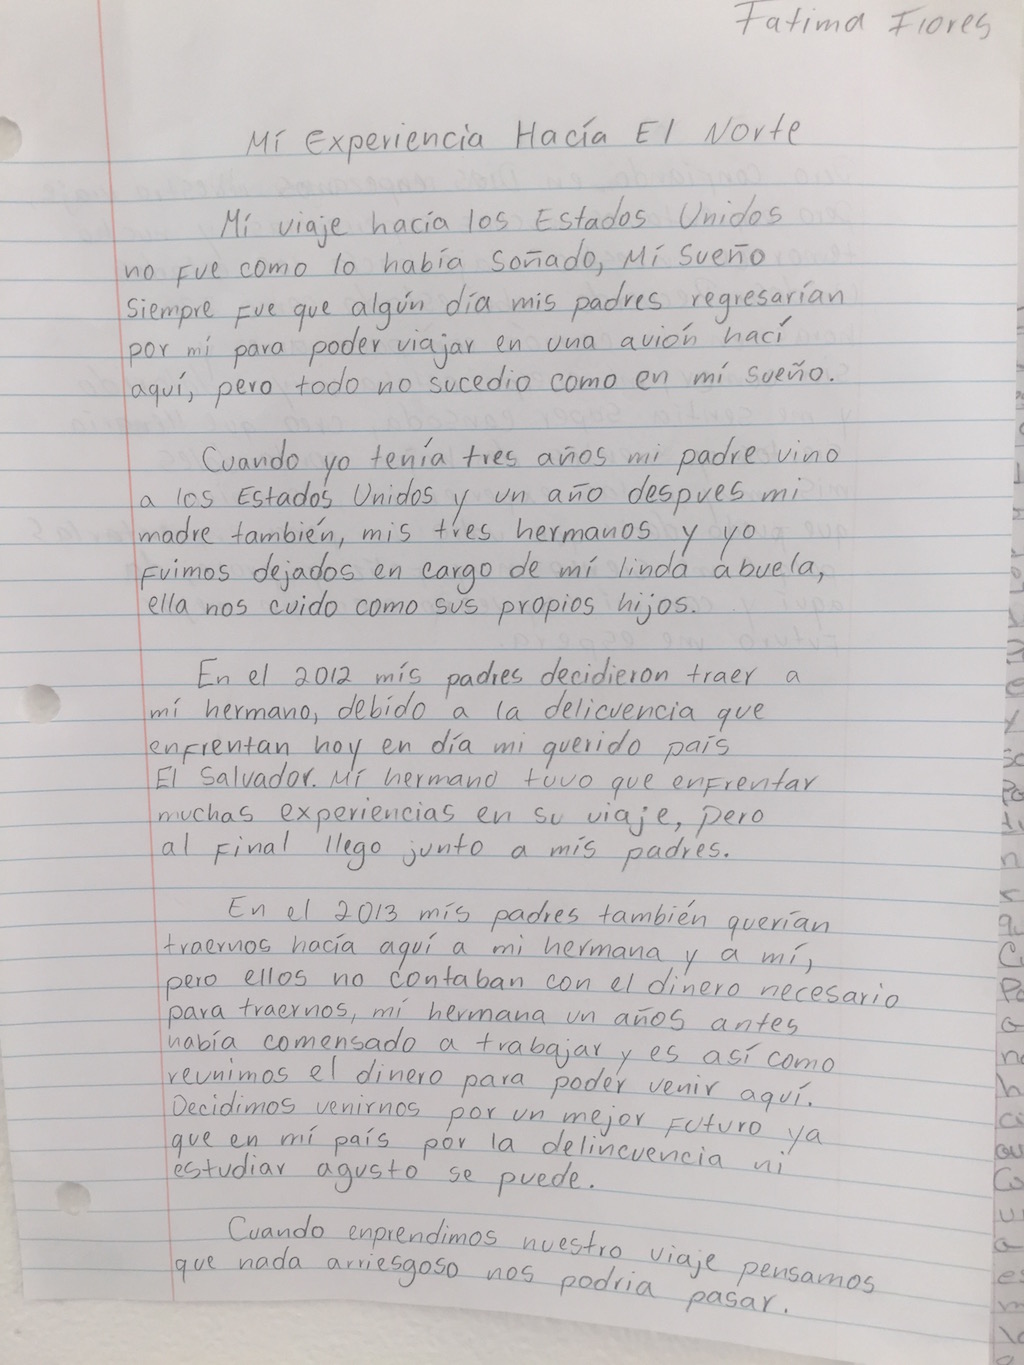 Fatima Flores
Mí Experiencia Hacía El Norte
Mí viaje hacía los Estados Unidos
no Fue como lo había soñado, Mí sueño
siempre Fue que algún día mis padres regresarían
por mí para poder viajar en una avión hací
aquí, pero todo no sucedio como en mí sueño.
Cuando yo tenía tres años mi padre vino
a los Estados Unidos y un año despues mi
madre también, mis tres hermanos y yo
Fuimos dejados en cargo de mí linda abuela,
ella nos cuido como sus propios hijos.
En el 2012 mís padres decidieron traer a
mí hermano, debido a la delicuencia que
enfrentan hoy en día mi querido país
El Salvador. Mí hermano tuvo que enfrentar
muchas experiencias en su viaje, pero
al Final llego junto a mís padres.
En el 2013 mís padres también querían
traernos hacía aquí a mi hermana y a mí,
pero ellos no contaban con el dinero necesario
para traernos, mí hermana un años antes
había comensado a trabajar y es así como
reunimos el dinero para poder venir aquí.
Decidimos venirnos por un mejor Futuro ya
que en mí país por la delincuencia ni
estudiar agusto se puede.
Cuando enprendimos nuestro viaje pensamos
que nada arriesgoso nos podria pasar.